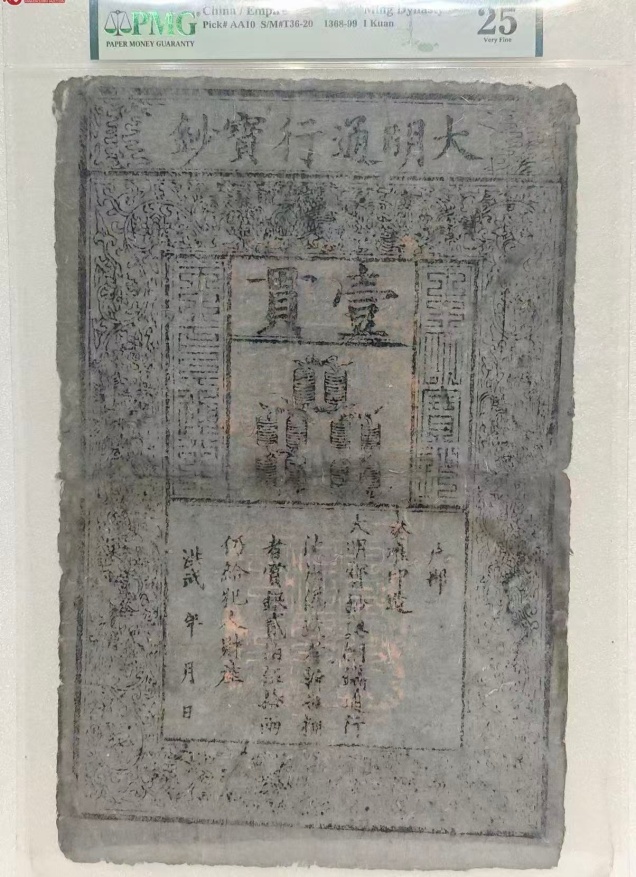 PMG
PAPER MONEY GUARANTY
China / Empire Ming Dynasty
Pick# AA10 S/M#T36-20 1368-99 1 Kuan
25
Very Fine
大明通行寶鈔
壹貫
戶部
奏准印造
大明寶鈔與銅錢通行
使用偽造者斬告捕
者賞銀貳伯伍拾兩
仍給犯人財產
洪武 年 月 日